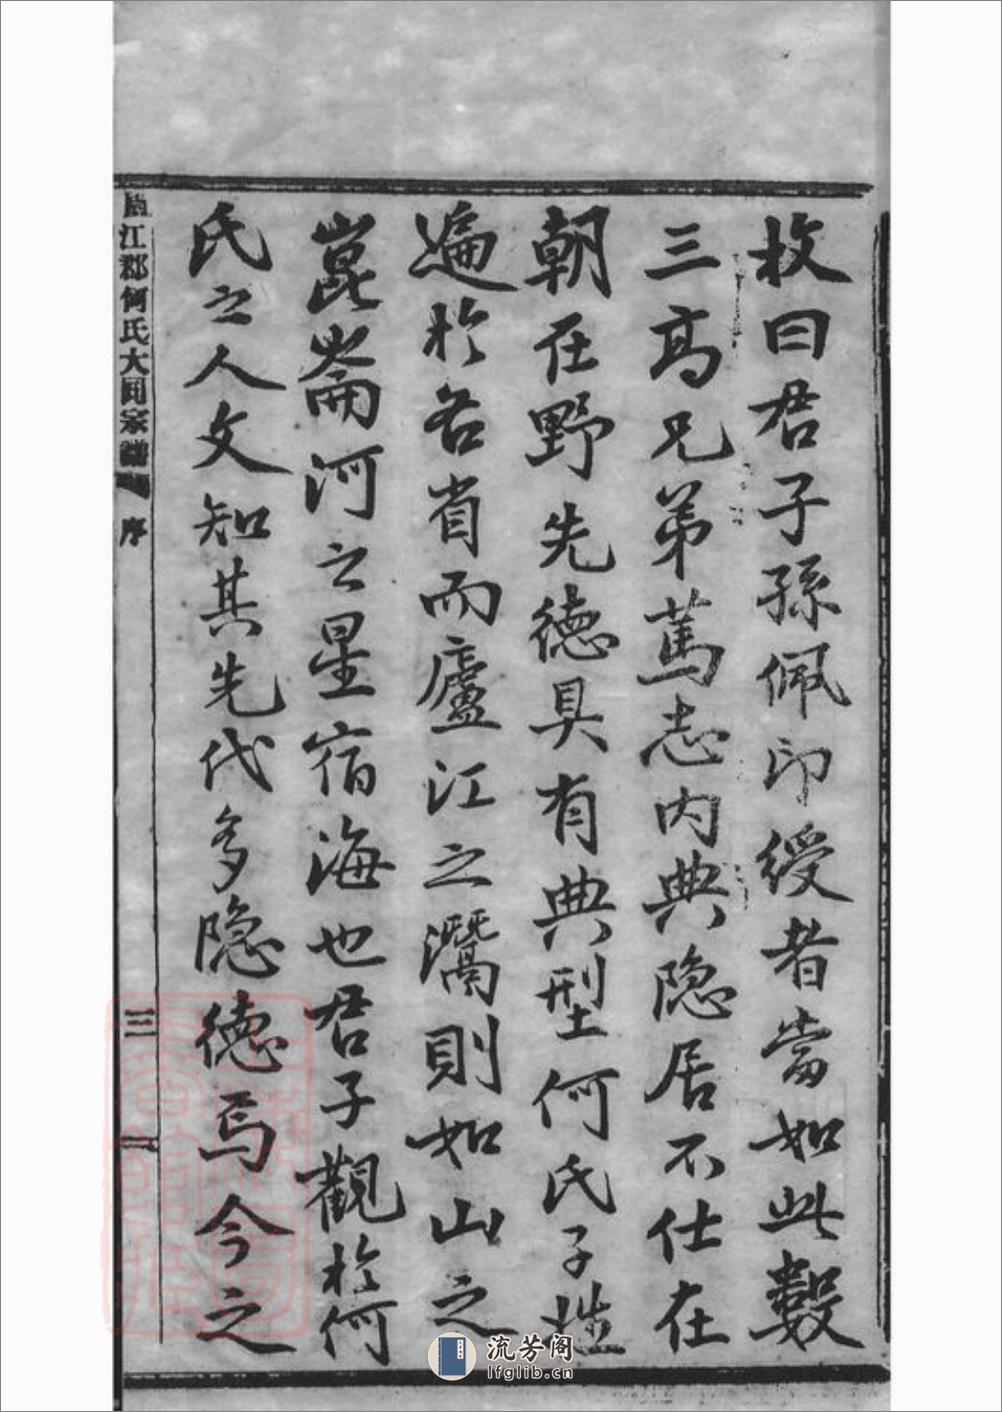 枚曰君子孫佩印綬者當如此數
三高兄弟篤志内典隐居不仕在
朝在野先德具有典型何氏子姓
遍於各省而廬江之灊則如山之
崑崙河之星宿海也君子觀於何
氏之人文知其先代多隐德焉今之
江郡何氏大同宗譜 序
三
流芳阁
lfglib.cn